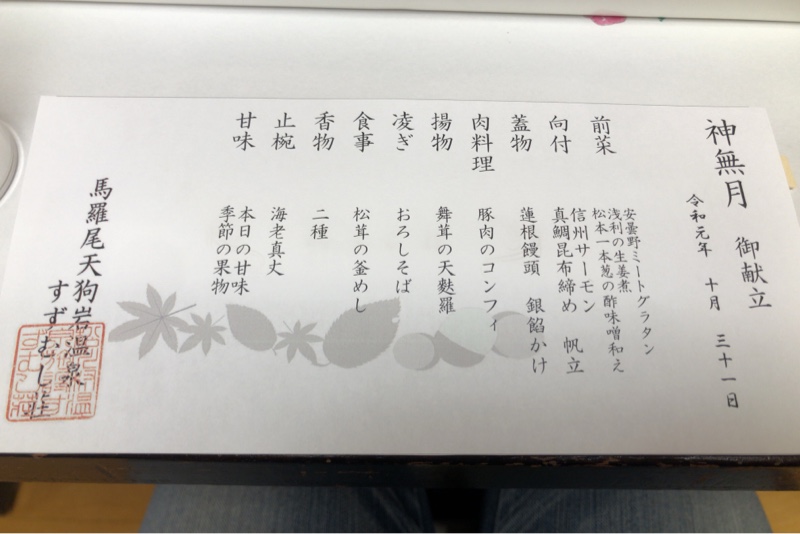 神無月 御献立
令和元年 十月 三十一日
前菜
安曇野ミートグラタン
浅利の生姜煮
松本一本葱の酢味噌和え
向付
信州サーモン 帆立
真鯛昆布締め
蓋物
蓮根饅頭 銀餡かけ
肉料理
豚肉のコンフィ
揚物
舞茸の天麩羅
凌ぎ
おろしそば
食事
松茸の釜めし
香物
二種
止椀
海老真丈
甘味
本日の甘味
季節の果物
馬羅尾天狗岩温泉
すずむし荘